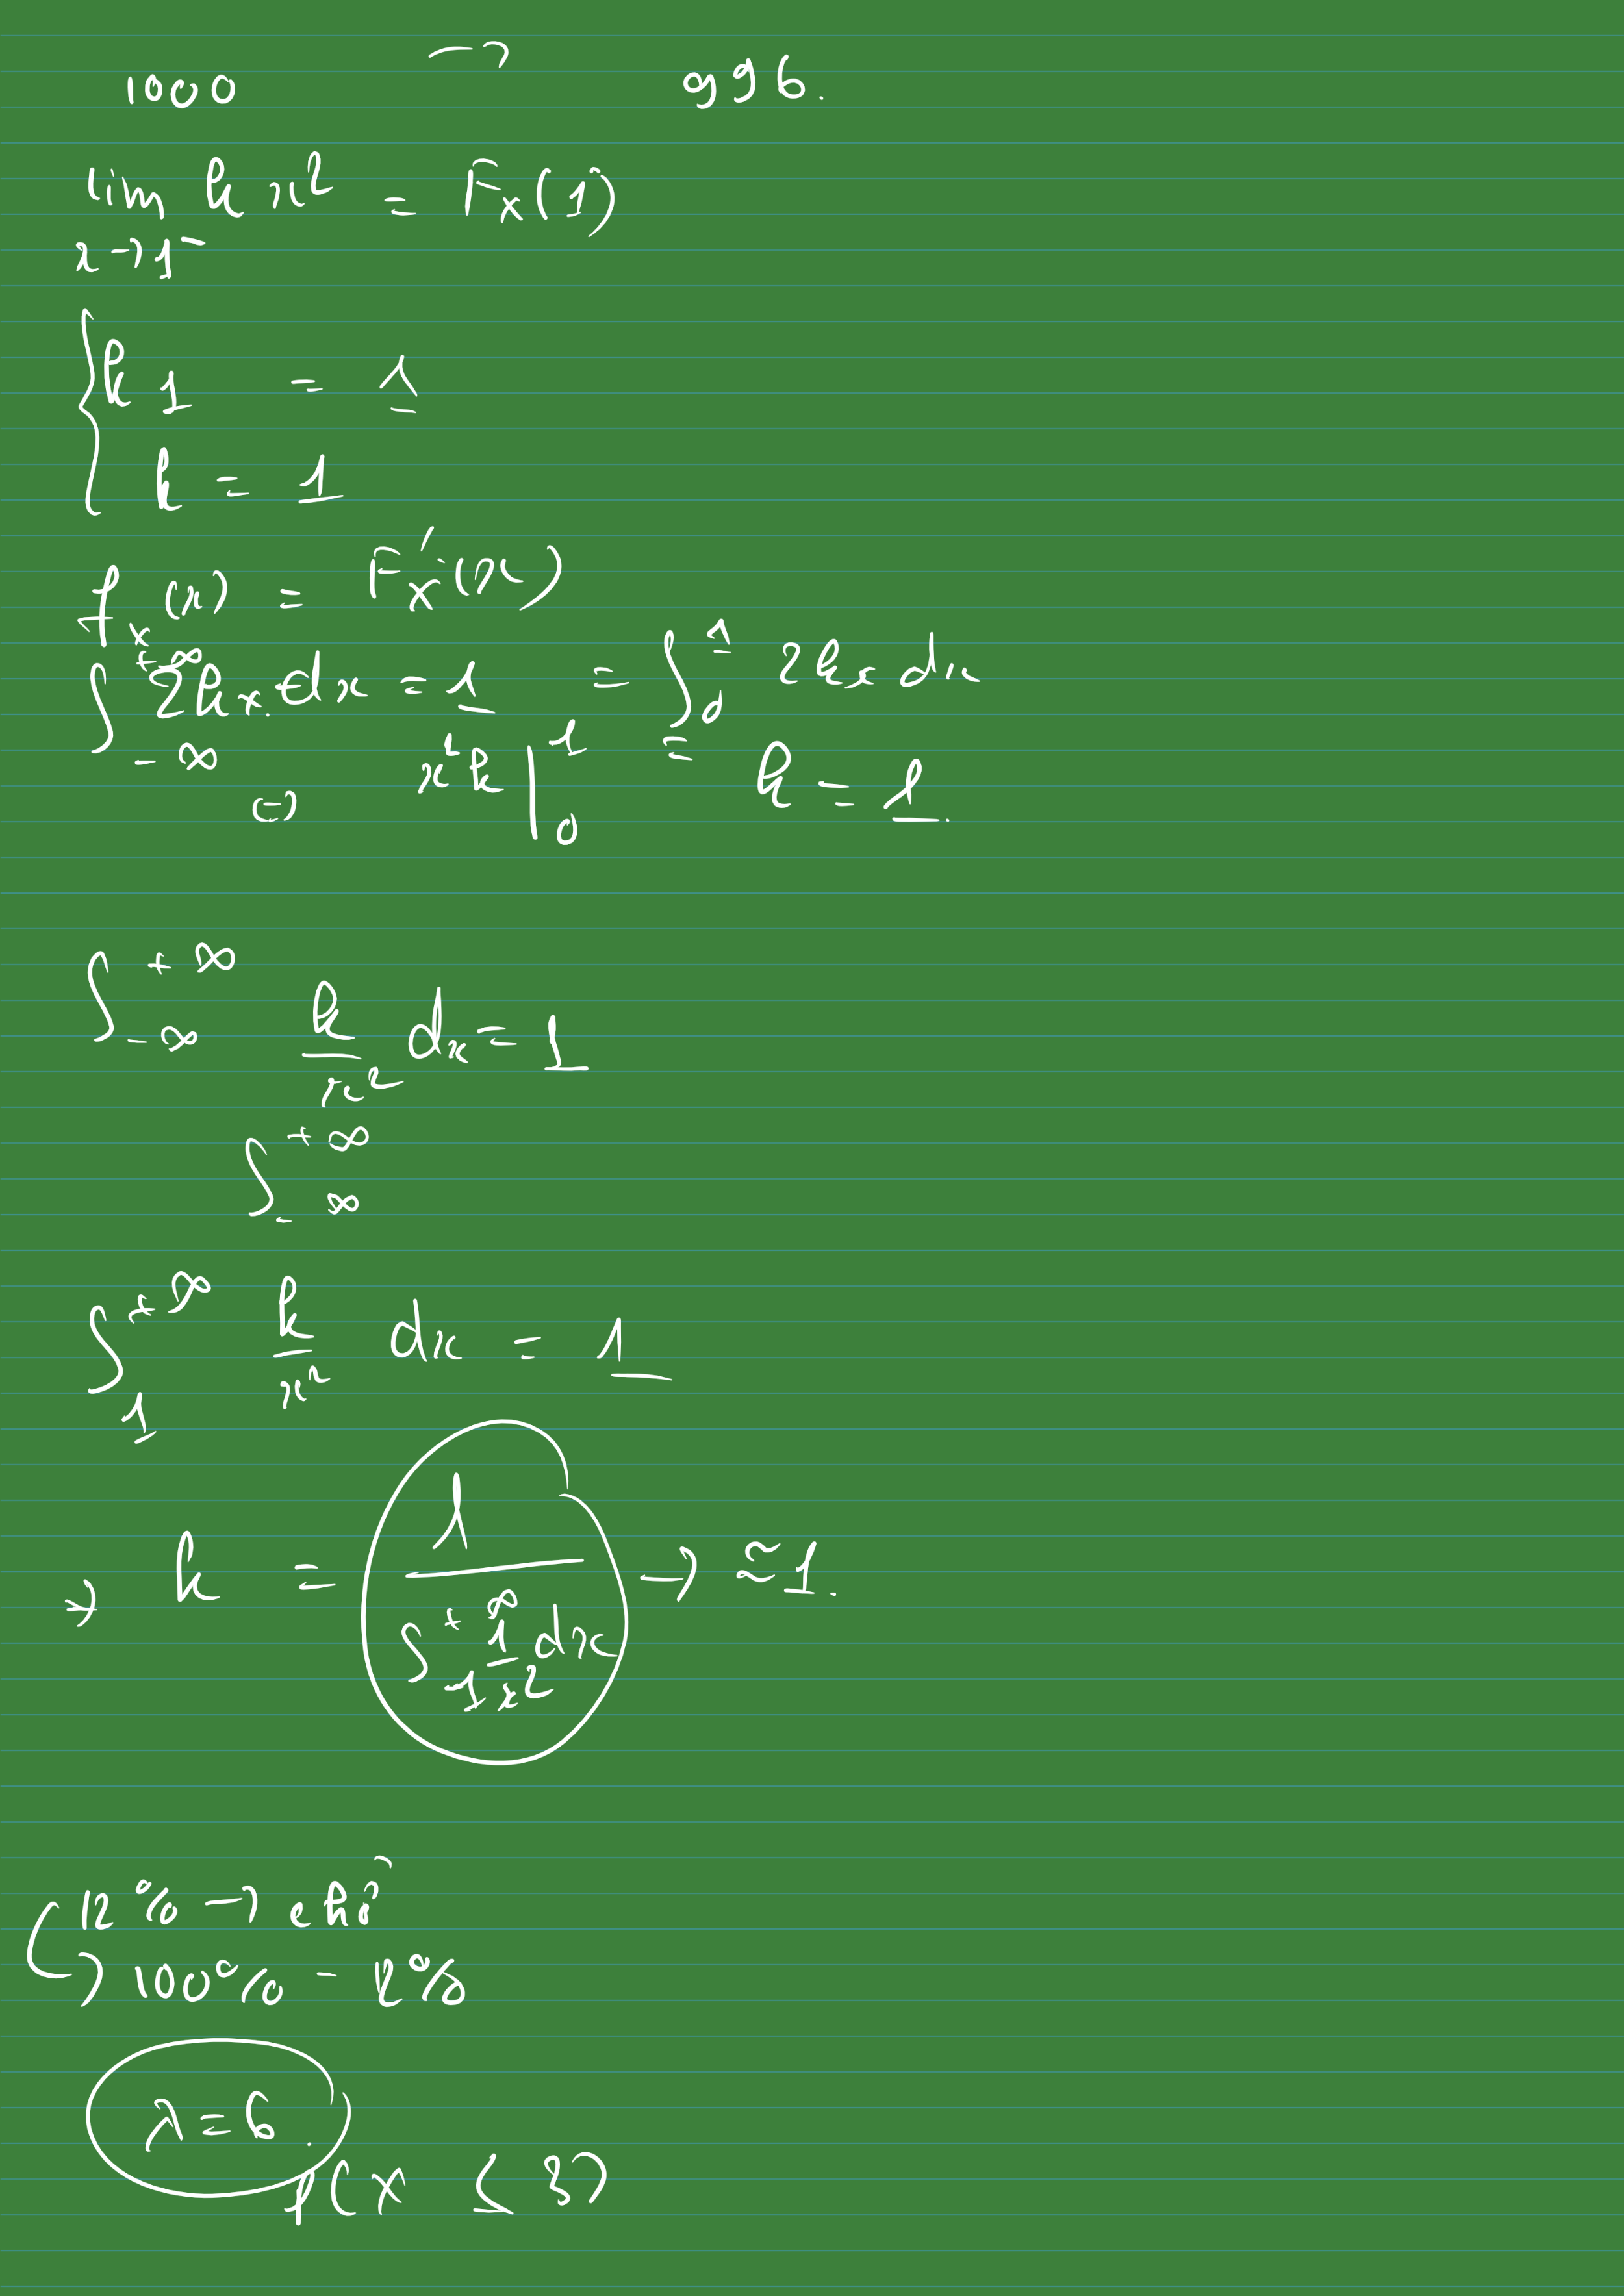 1000 → 996.
lim k x² = Fx(1)
x→1⁻
{ k 1 = 1
k = 1
fx(x) = Fx'(x)
∫_{-∞}^{+∞} 2kx. dx = 1 = ∫_0^1 2kx dx
⇔ x²k |_0^1 = k = 1.
∫_{-∞}^{+∞} k/x² dx = 1
∫_{-∞}^{+∞}
∫_1^{+∞} k/x² dx = 1
→ k = 1 / ∫_1^{+∞} 1/x² dx → ≈ 1.
12% →
→ 100% - 12%
λ = 6.
P(X ≤ 3)